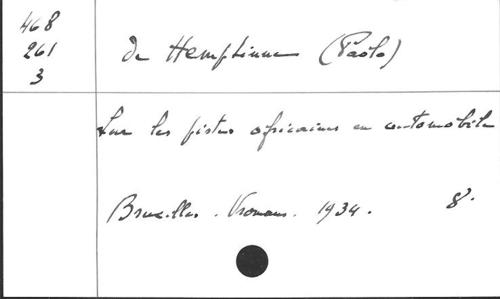 468
261
3
De Hemptinne (Paolo)
Sur les pistes africaines en automobile
Bruxelles. Vromans. 1934. 8°